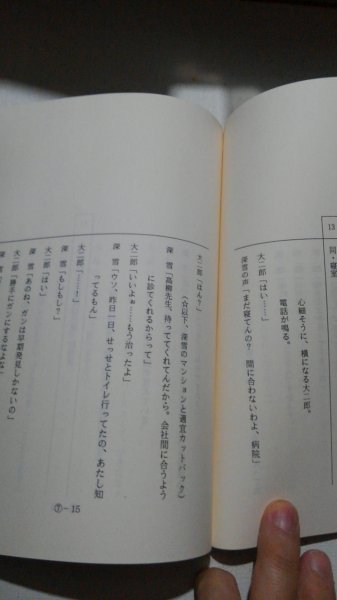 13
同・寝室
心細そうに、横になる大二郎。
電話が鳴る。
大二郎「はい……」
深雪の声「まだ寝てんの? 間に合わないわよ、病院」
大二郎「はん?」
(☆以下、深雪のマンションと適宜カットバック)
深 雪「高柳先生、待っててくれてんだから。会社間に合うよう
に診てくれるからって」
大二郎「いいよぉ……もう治ったよ」
深 雪「ウソ、昨日一日、せっせとトイレ行ってたの、あたし知
ってるもん」
大二郎「……?」
深 雪「もしもし?」
大二郎「はい」
深 雪「あのね、ガンは早期発見しかないの」
大二郎「勝手にガンにするなよな」
⑦−15